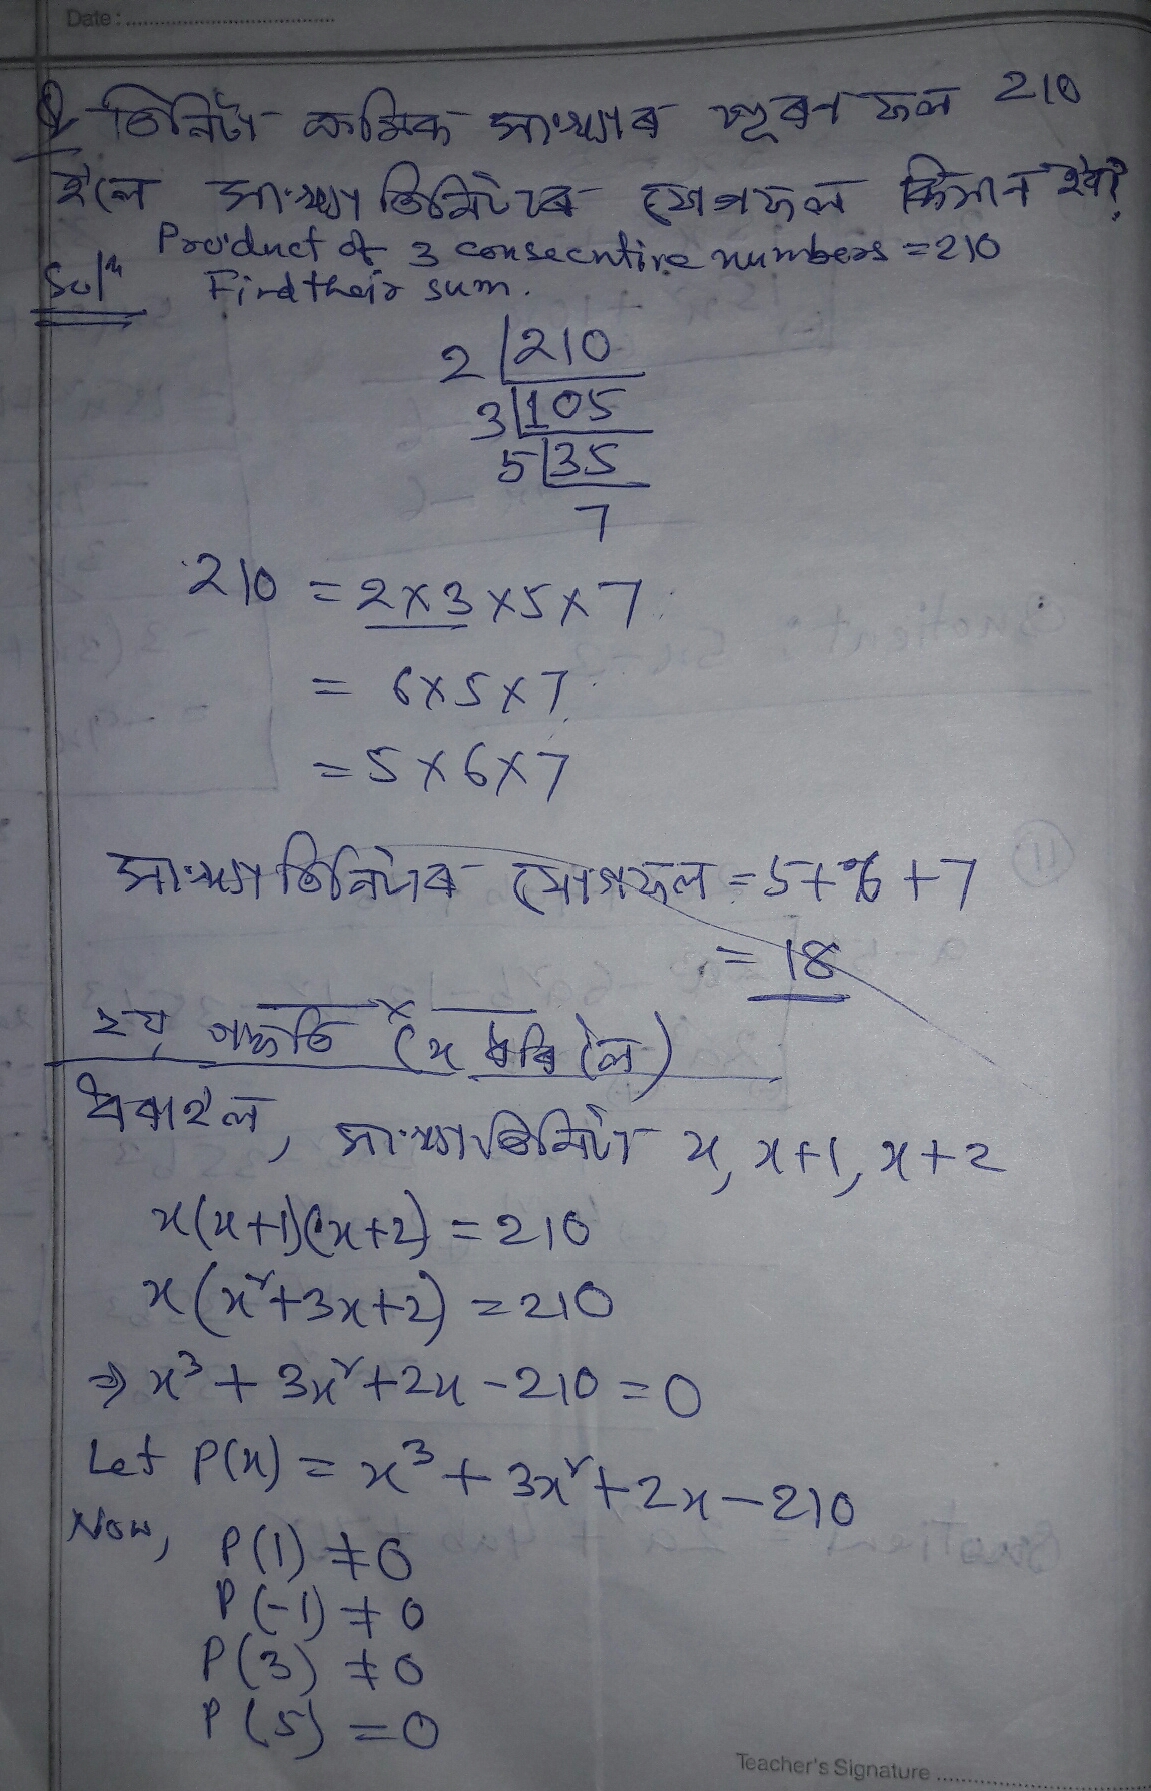 Date :
Q তিনিটা ক্ৰমিক সংখ্যাৰ পূৰণফল 210
হ'লে সংখ্যা তিনিটাৰ যোগফল কিমান হ'ব?
Product of 3 consecutive numbers = 210
Solⁿ Find their sum.
2 | 210
3 | 105
5 | 35
7
210 = 2 x 3 x 5 x 7
= 6 x 5 x 7
= 5 x 6 x 7
সংখ্যা তিনিটাৰ যোগফল = 5 + 6 + 7
= 18
২য় পদ্ধতি (x ধৰি লৈ)
ধৰাহ'ল, সংখ্যা তিনিটা x, x+1, x+2
x(x+1)(x+2) = 210
x(x²+3x+2) = 210
⇒ x³ + 3x² + 2x - 210 = 0
Let P(x) = x³ + 3x² + 2x - 210
Now, P(1) ≠ 0
P(-1) ≠ 0
P(3) ≠ 0
P(5) = 0
Teacher's Signature